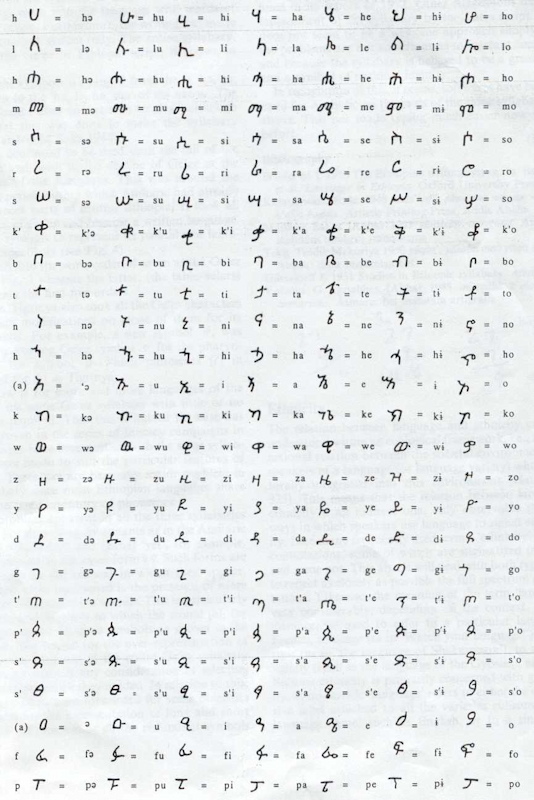 h ሀ = hə ሁ = hu ሂ = hi ሃ = ha ሄ = he ህ = hɨ ሆ = ho
l ለ = lə ሉ = lu ሊ = li ላ = la ሌ = le ል = lɨ ሎ = lo
h ሐ = hə ሑ = hu ሒ = hi ሓ = ha ሔ = he ሕ = hɨ ሖ = ho
m መ = mə ሙ = mu ሚ = mi ማ = ma ሜ = me ም = mɨ ሞ = mo
s ሰ = sə ሱ = su ሲ = si ሳ = sa ሴ = se ስ = sɨ ሶ = so
r ረ = rə ሩ = ru ሪ = ri ራ = ra ሬ = re ር = rɨ ሮ = ro
s ሠ = sə ሡ = su ሢ = si ሣ = sa ሤ = se ሥ = sɨ ሦ = so
k' ቀ = k'ə ቁ = k'u ቂ = k'i ቃ = k'a ቄ = k'e ቅ = k'ɨ ቆ = k'o
b በ = bə ቡ = bu ቢ = bi ባ = ba ቤ = be ብ = bɨ ቦ = bo
t ተ = tə ቱ = tu ቲ = ti ታ = ta ቴ = te ት = tɨ ቶ = to
n ነ = nə ኑ = nu ኒ = ni ና = na ኔ = ne ን = nɨ ኖ = no
h ኀ = hə ኁ = hu ኂ = hi ኃ = ha ኄ = he ኅ = hɨ ኆ = ho
(a) አ = 'ə ኡ = u ኢ = i ኣ = a ኤ = e እ = i ኦ = o
k ከ = kə ኩ = ku ኪ = ki ካ = ka ኬ = ke ክ = kɨ ኮ = ko
w ወ = wə ዉ = wu ዊ = wi ዋ = wa ዌ = we ው = wɨ ዎ = wo
z ዘ = zə ዙ = zu ዚ = zi ዛ = za ዜ = ze ዝ = zɨ ዞ = zo
y የ = yə ዩ = yu ዪ = yi ያ = ya ዬ = ye ይ = yɨ ዮ = yo
d ደ = də ዱ = du ዲ = di ዳ = da ዴ = de ድ = dɨ ዶ = do
g ገ = gə ጉ = gu ጊ = gi ጋ = ga ጌ = ge ግ = gɨ ጎ = go
t' ጠ = t'ə ጡ = t'u ጢ = t'i ጣ = t'a ጤ = t'e ጥ = t'ɨ ጦ = t'o
p' ጰ = p'ə ጱ = p'u ጲ = p'i ጳ = p'a ጴ = p'e ጵ = p'ɨ ጶ = p'o
s' ጸ = s'ə ጹ = s'u ጺ = s'i ጻ = s'a ጼ = s'e ጽ = s'ɨ ጾ = s'o
s' ፀ = s'ə ፁ = s'u ፂ = s'i ፃ = s'a ፄ = s'e ፅ = s'ɨ ፆ = s'o
(a) ዐ = ə ዑ = u ዒ = i ዓ = a ዔ = e ዕ = i ዖ = o
f ፈ = fə ፉ = fu ፊ = fi ፋ = fa ፌ = fe ፍ = fɨ ፎ = fo
p ፐ = pə ፑ = pu ፒ = pi ፓ = pa ፔ = pe ፕ = pɨ ፖ = po